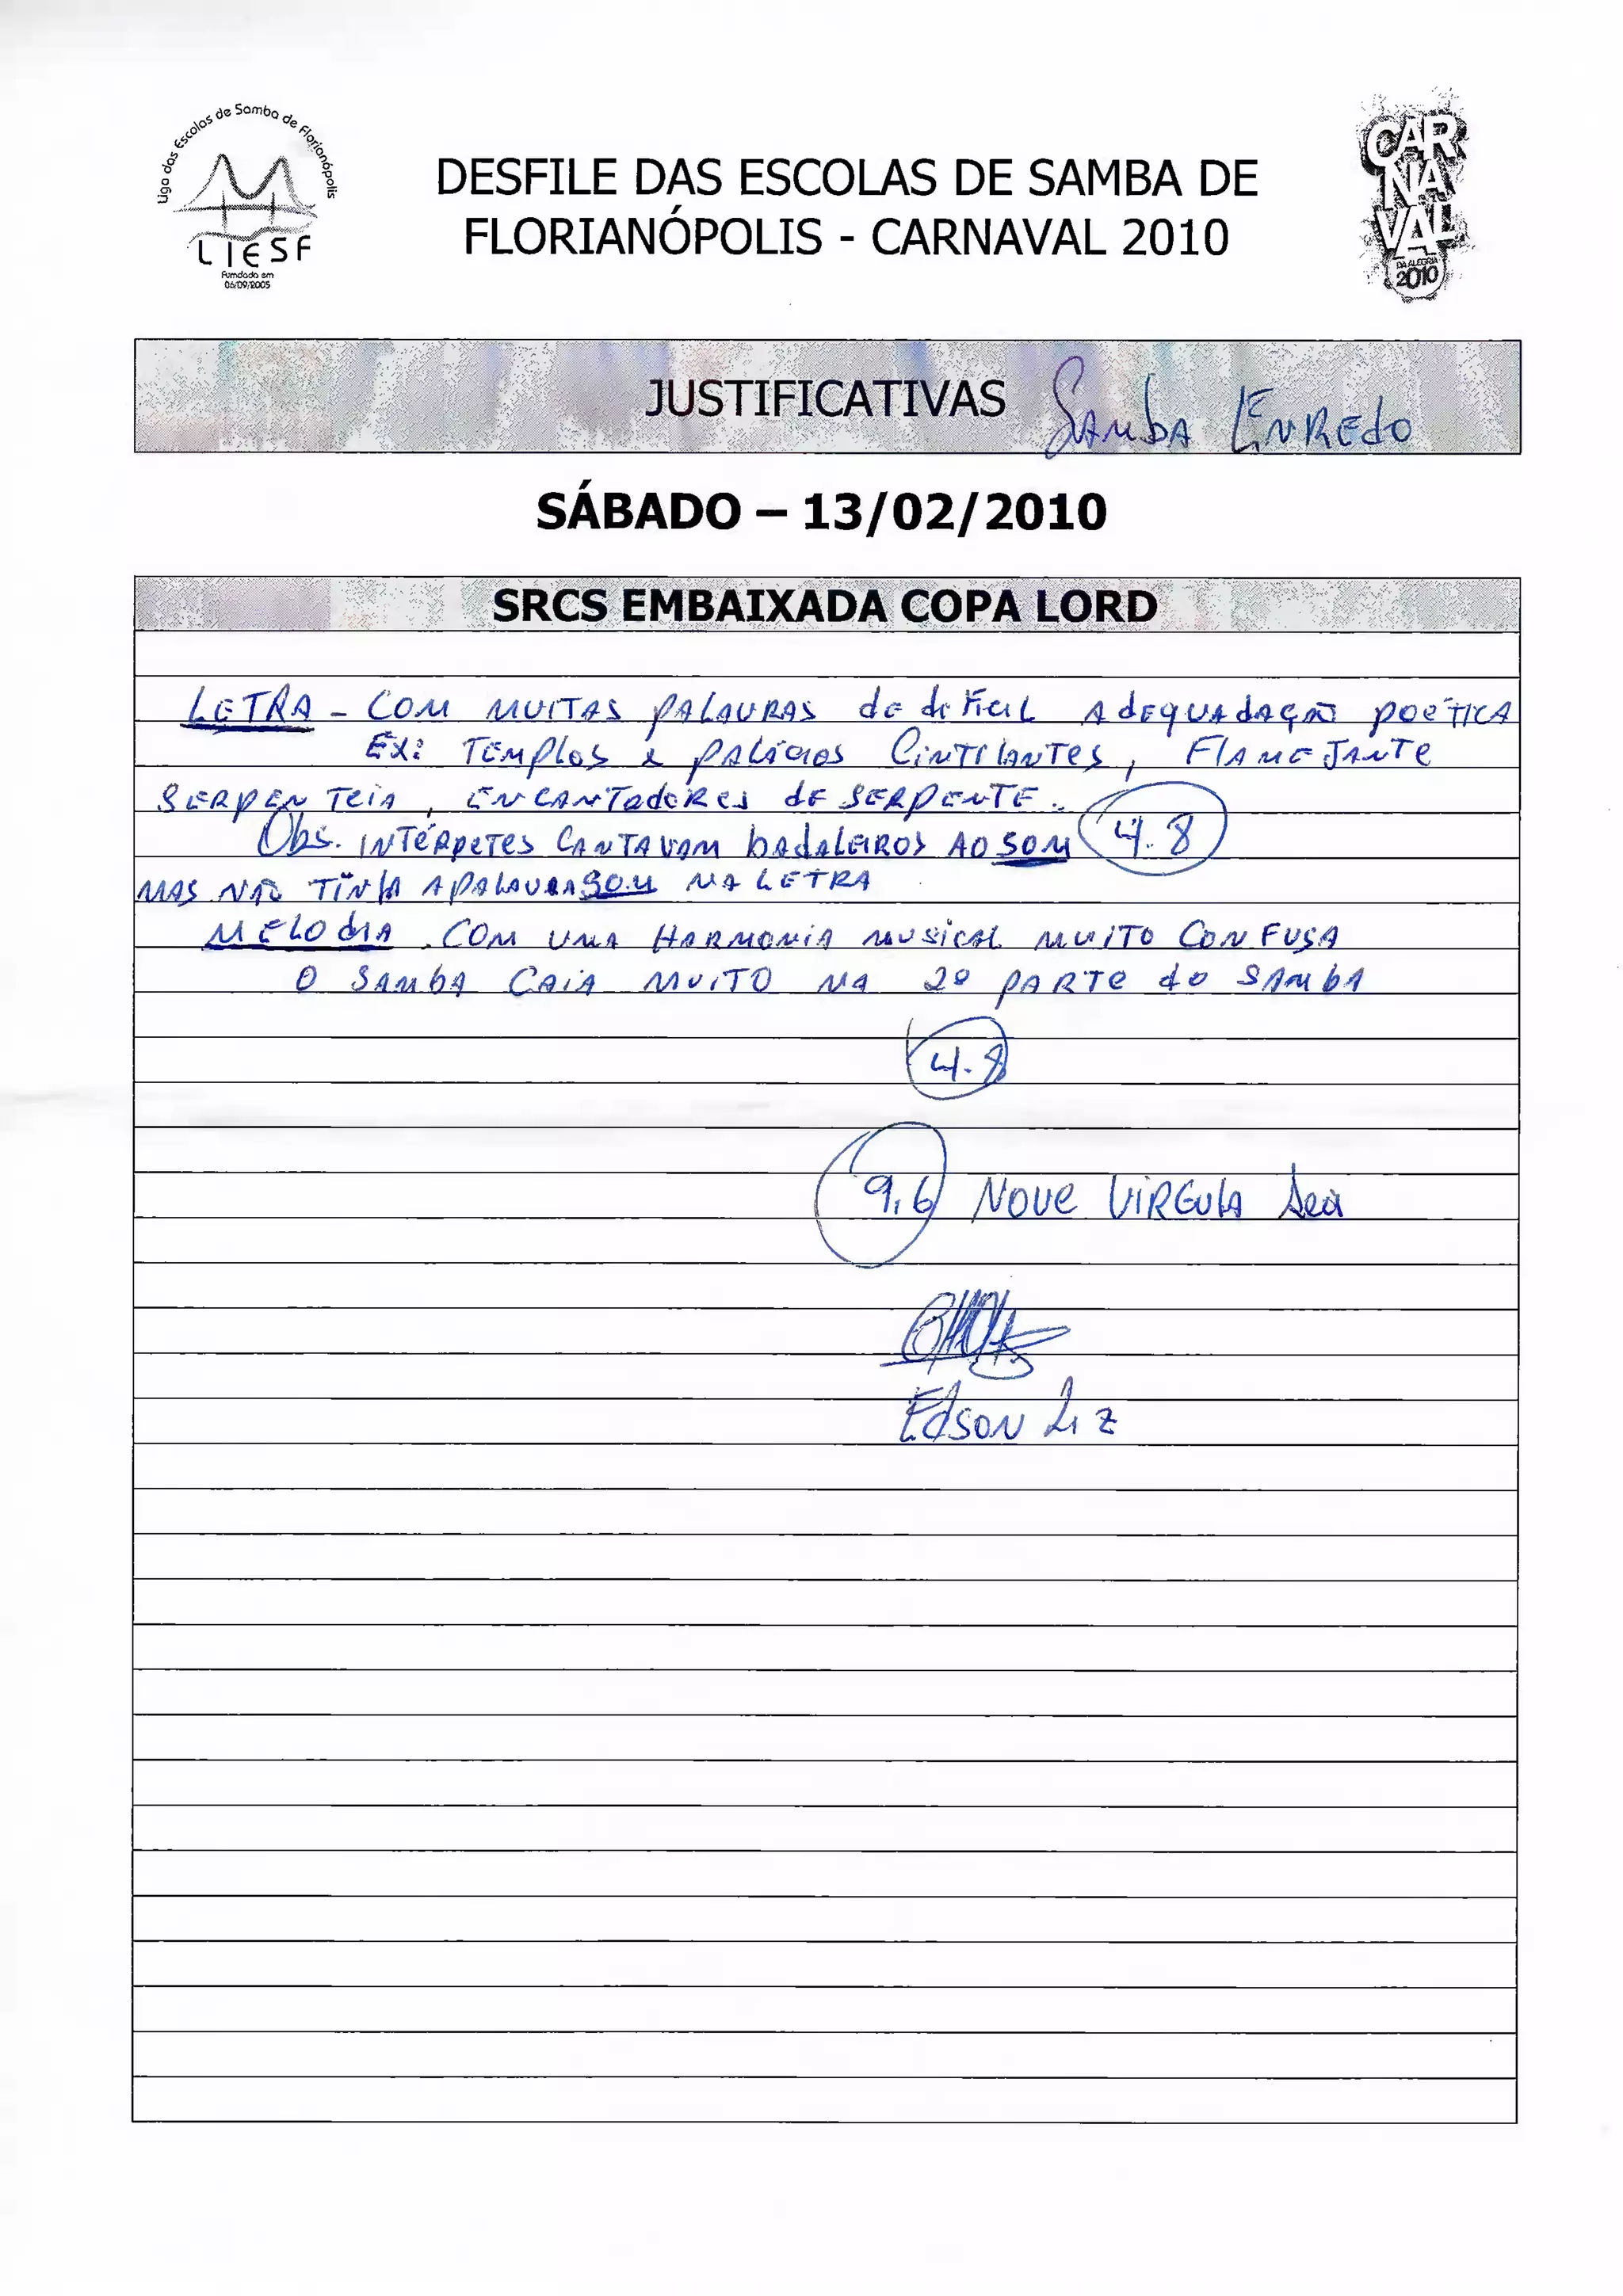 Liga das Escolas de Samba de Florianópolis
LIESF
Fundada em
06/09/2005
DESFILE DAS ESCOLAS DE SAMBA DE
FLORIANÓPOLIS - CARNAVAL 2010
CAR
NA
VAL
DA ALEGRIA
2010
JUSTIFICATIVAS SAMBA ENREDO
SÁBADO – 13/02/2010
SRCS EMBAIXADA COPA LORD
LETRA - COM MUITAS PALAVRAS de dificil AdEQUAdAÇÃO POETICA
EX: TEMPLOS & PALÁCIOS CINTILANTES, FLAMEJANTE
SERPENTEIA, ENCANTAdoREs dE SERPENTE.. 4.8
Obs. INTÉRPETES CANTAVAM bAdALEIROS AO SOM
MAS NÃO TINHA A PALAVRA SOM NA LETRA
MELOdIA . COM UMA HARMONIA MUSICAL MUITO CONFUSA
O SAMbA CAIA MUITO NA 2º PARTE do SAMbA
4.8
9,6 NOVE VIRGULA Seis
EdSON Liz